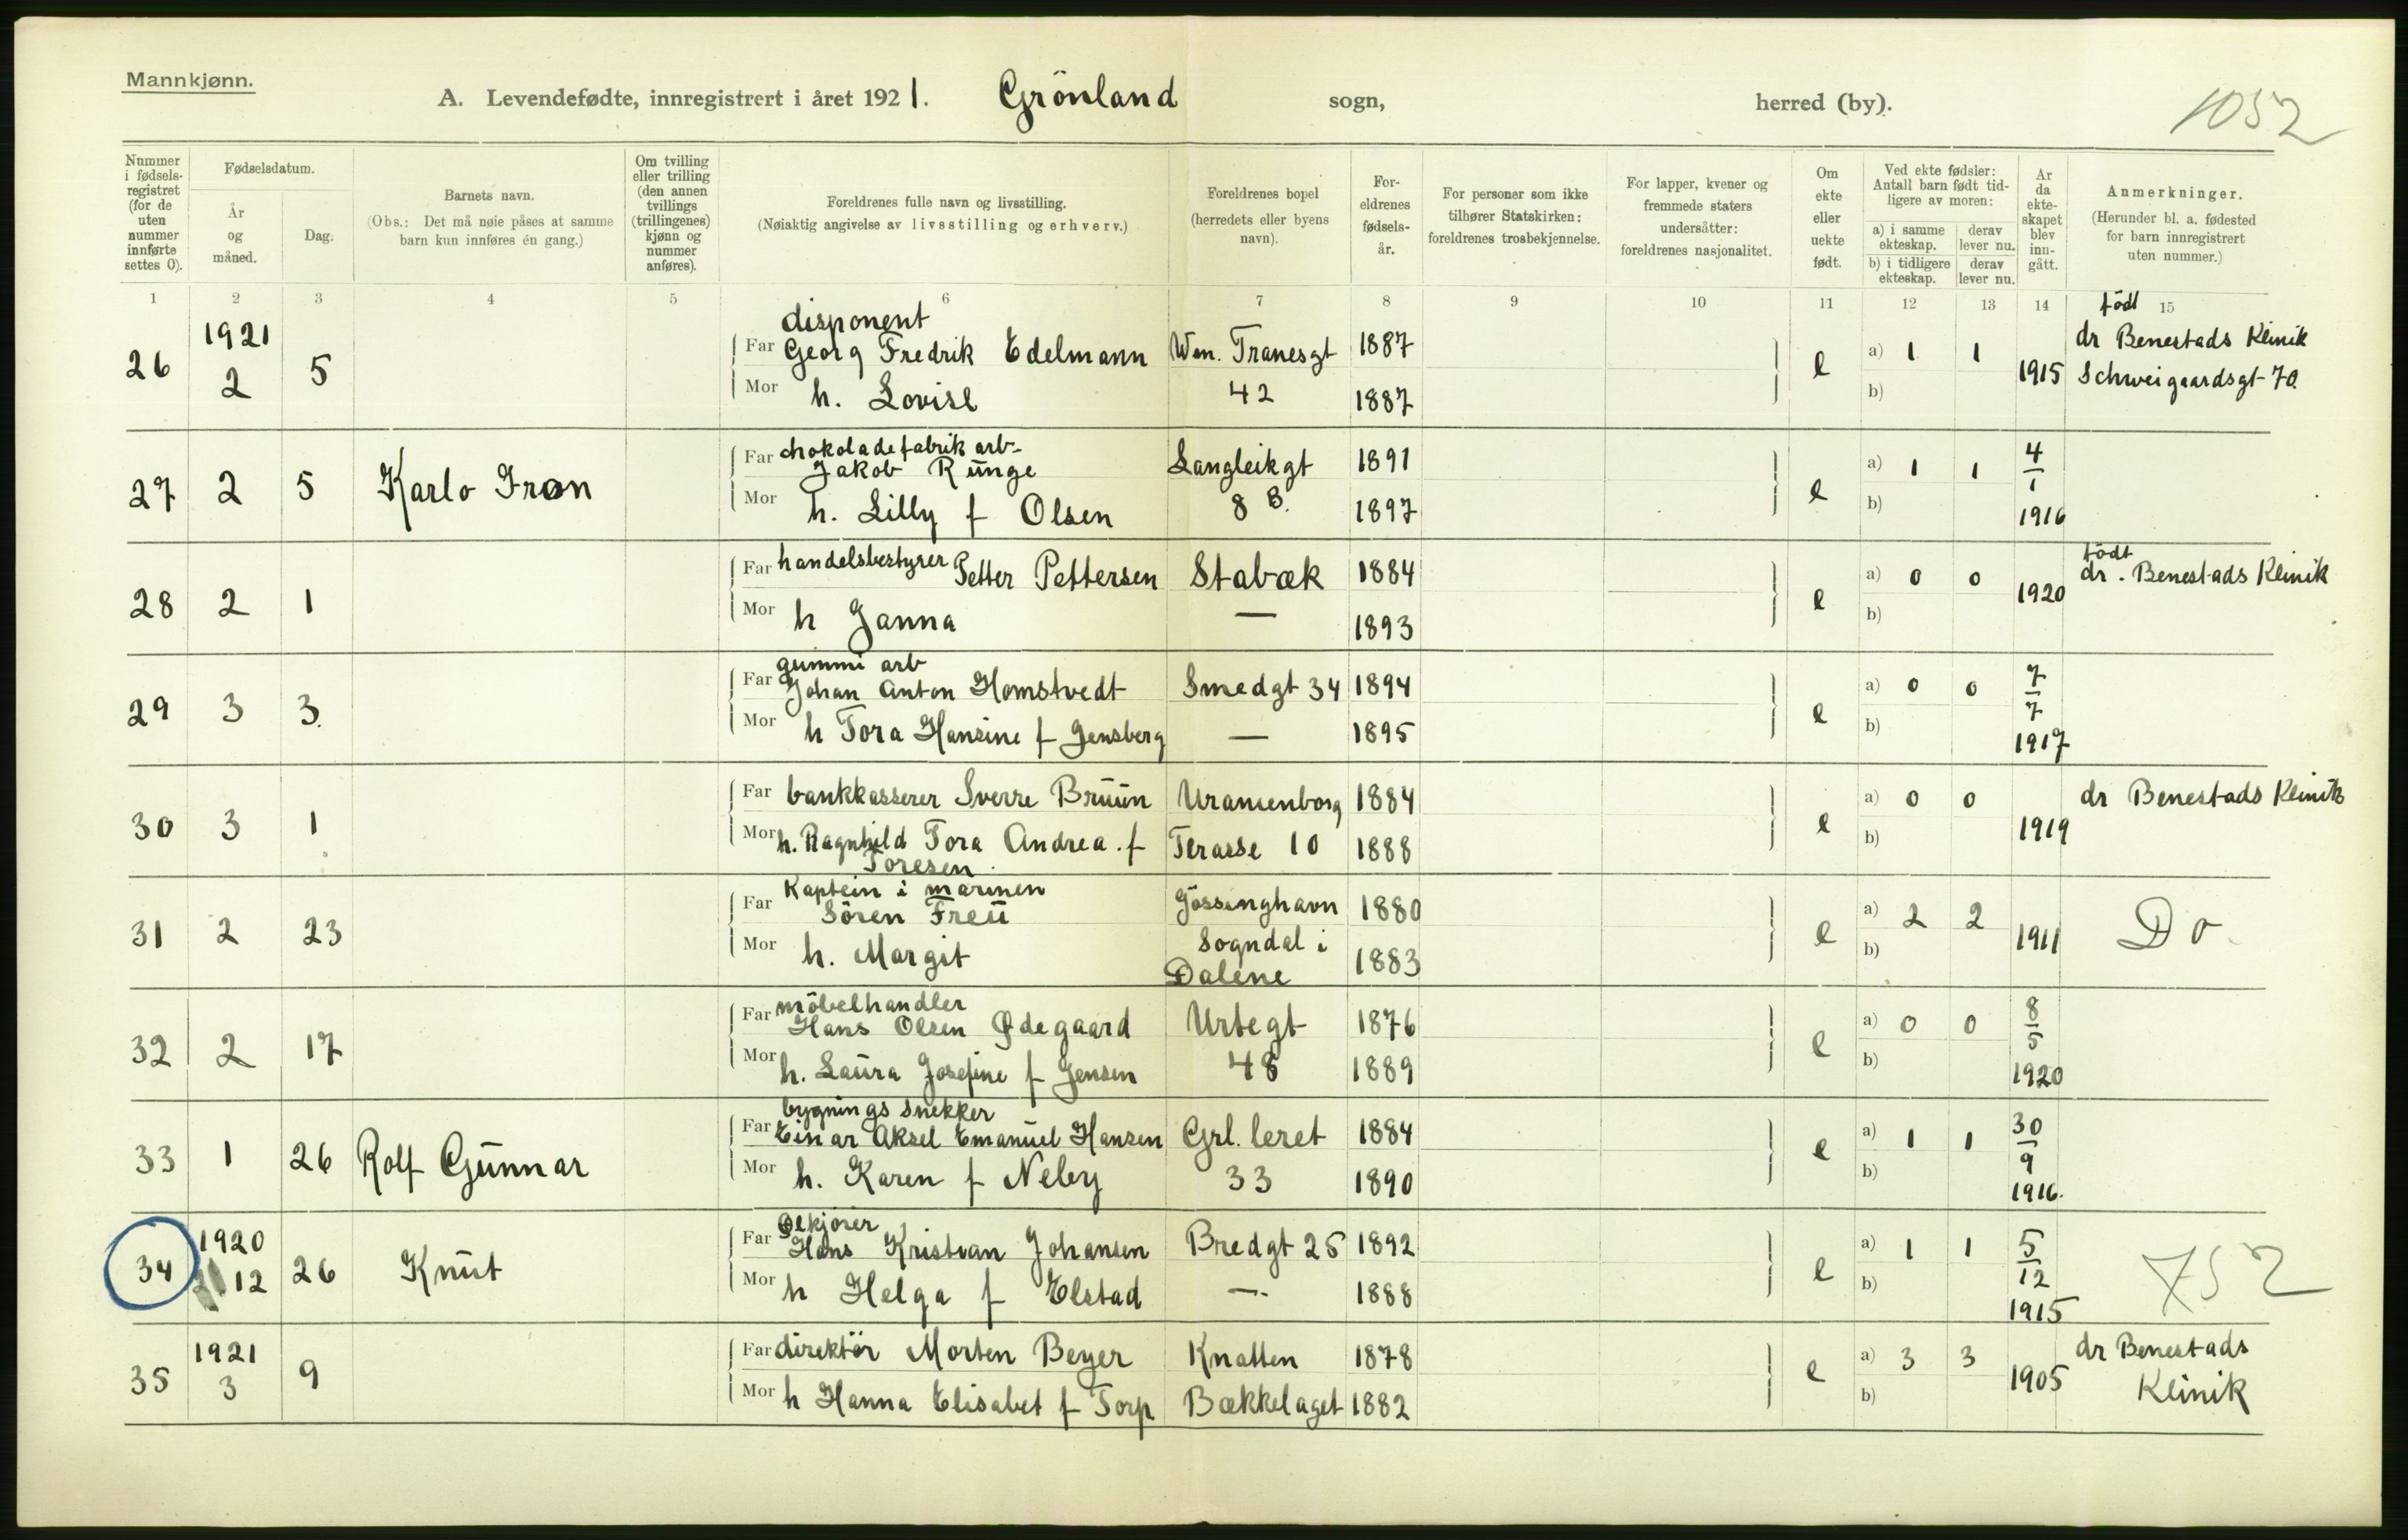 Mannkjønn.
A. Levendefødte, innregistrert i året 1921. Grönland sogn, herred (by).
1052
Nummer i fødsels-registret (for de uten nummer innførte settes 0).
Fødselsdatum.
År og måned.
Dag.
Barnets navn.
(Obs.: Det må nøie påses at samme barn kun innføres én gang.)
Om tvilling eller trilling (den annen tvillings (trillingenes) kjønn og nummer anføres).
Foreldrenes fulle navn og livsstilling.
(Nøiaktig angivelse av livsstilling og erhverv.)
Foreldrenes bopel (herredets eller byens navn).
For-eldrenes fødsels-år.
For personer som ikke tilhører Statskirken: foreldrenes trosbekjennelse.
For lapper, kvener og fremmede staters undersåtter: foreldrenes nasjonalitet.
Om ekte eller uekte født.
Ved ekte fødsler: Antall barn født tid-ligere av moren:
a) i samme ekteskap. derav lever nu.
b) i tidligere ekteskap. derav lever nu.
År da ekte-skapet blev inn-gått.
Anmerkninger.
(Herunder bl. a. fødested for barn innregistrert uten nummer.)
1 2 3 4 5 6 7 8 9 10 11 12 13 14 15
26 1921 2 5
disponent
Far Georg Fredrik Edelmann Wm. Tranesgt 1887
Mor h. Lovise 42 1887
e a) 1 1 b) 1915
född dr Benestads Klinik
Schweigaardsgt 70.
27 2 5 Karlo Iron
Far chokoladefabrik arb-
Jakob Runge Langleikgt 1891
Mor h. Lilly f Olsen 8 B. 1897
e a) 1 1 b) 4/1 1916
28 2 1
Far handelsbestyrer Petter Pettersen Stabæk 1884
Mor h Janna — 1893
e a) 0 0 b) 1920
födt
dr. Benestads Klinik
29 3 3.
gummi arb
Far Johan Anton Homstvedt Smedgt 34 1894
Mor h Tora Hansine f Jensberg — 1895
e a) 0 0 b) 7/7 1917
30 3 1
Far bankkasserer Sverre Bruun Uranienborg 1884
Mor h. Ragnhild Tora Andrea f Terasse 10 1888
Toresen
e a) 0 0 b) 1919
dr Benestads Klinik
31 2 23
Kaptein i marinen
Far Sören Freu Jössinghavn 1880
Mor h. Margit Sogndal i 1883
Dalene
e a) 2 2 b) 1911
Do.
32 2 17
möbelhandler
Far Hans Olsen Ødegaard Urtegt 1876
Mor h. Laura Josefine f Jensen 48 1889
e a) 0 0 b) 8/5 1920
33 1 26 Rolf Gunnar
bygnings snekker
Far Einar Aksel Emanuel Hansen Grl. leret 1884
Mor h. Karen f Neby 33 1890
e a) 1 1 b) 30/9 1916.
34 1920 12 26 Knut
Ølkjører
Far Hans Kristian Johansen Bredgt 25 1892
Mor h Helga f Elstad — 1888
e a) 1 1 b) 5/12 1915
752
35 1921 3 9
Far direktör Morten Beyer Knatten 1878
Mor h Hanna Elisabet f Torp Bækkelaget 1882
e a) 3 3 b) 1905
dr Benestads
Klinik